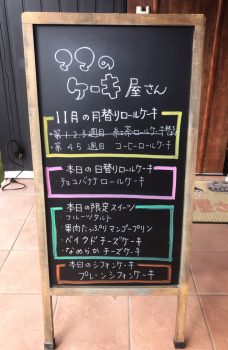 ケーキ屋さん
11月の月替りロールケーキ
・第1.2.3週目 紅茶ロールケーキ
・第4.5週目 コーヒーロールケーキ
本日の日替りロールケーキ
チョコバナナロールケーキ
本日の限定スイーツ
・フルーツタルト
・果肉たっぷりマンゴープリン
・ベイクドチーズケーキ
・なめらかチーズケーキ
本日のシフォンケーキ
プレーンシフォンケーキ